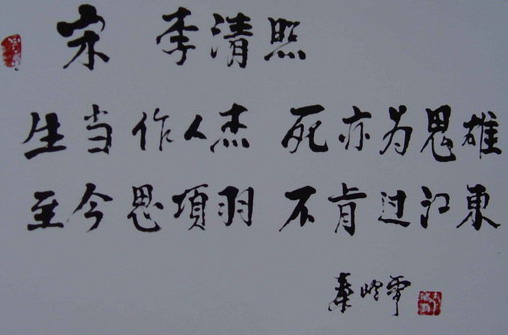 宋 李清照
生当作人杰 死亦为鬼雄
至今思項羽 不肯过江東
秦岭